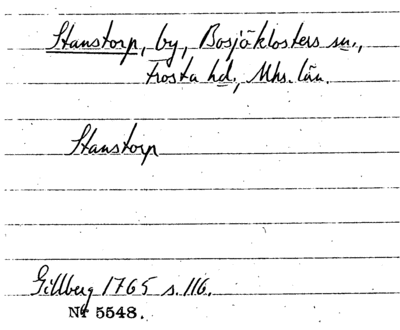 Stanstorp, by, Bosjöklosters sn.,
Frosta hd., Mhs. län.
Stanstorp
Gillberg 1765 s. 116.
Nr 5548.